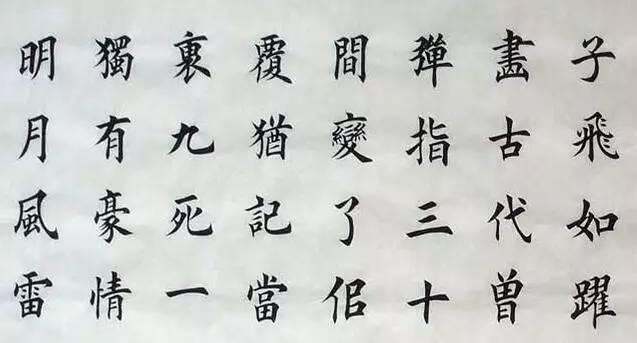 子飛如躍
畫古代曾
彈指三十
間變了侶
覆猶記當
裏九死一
獨有豪情
明月風雷